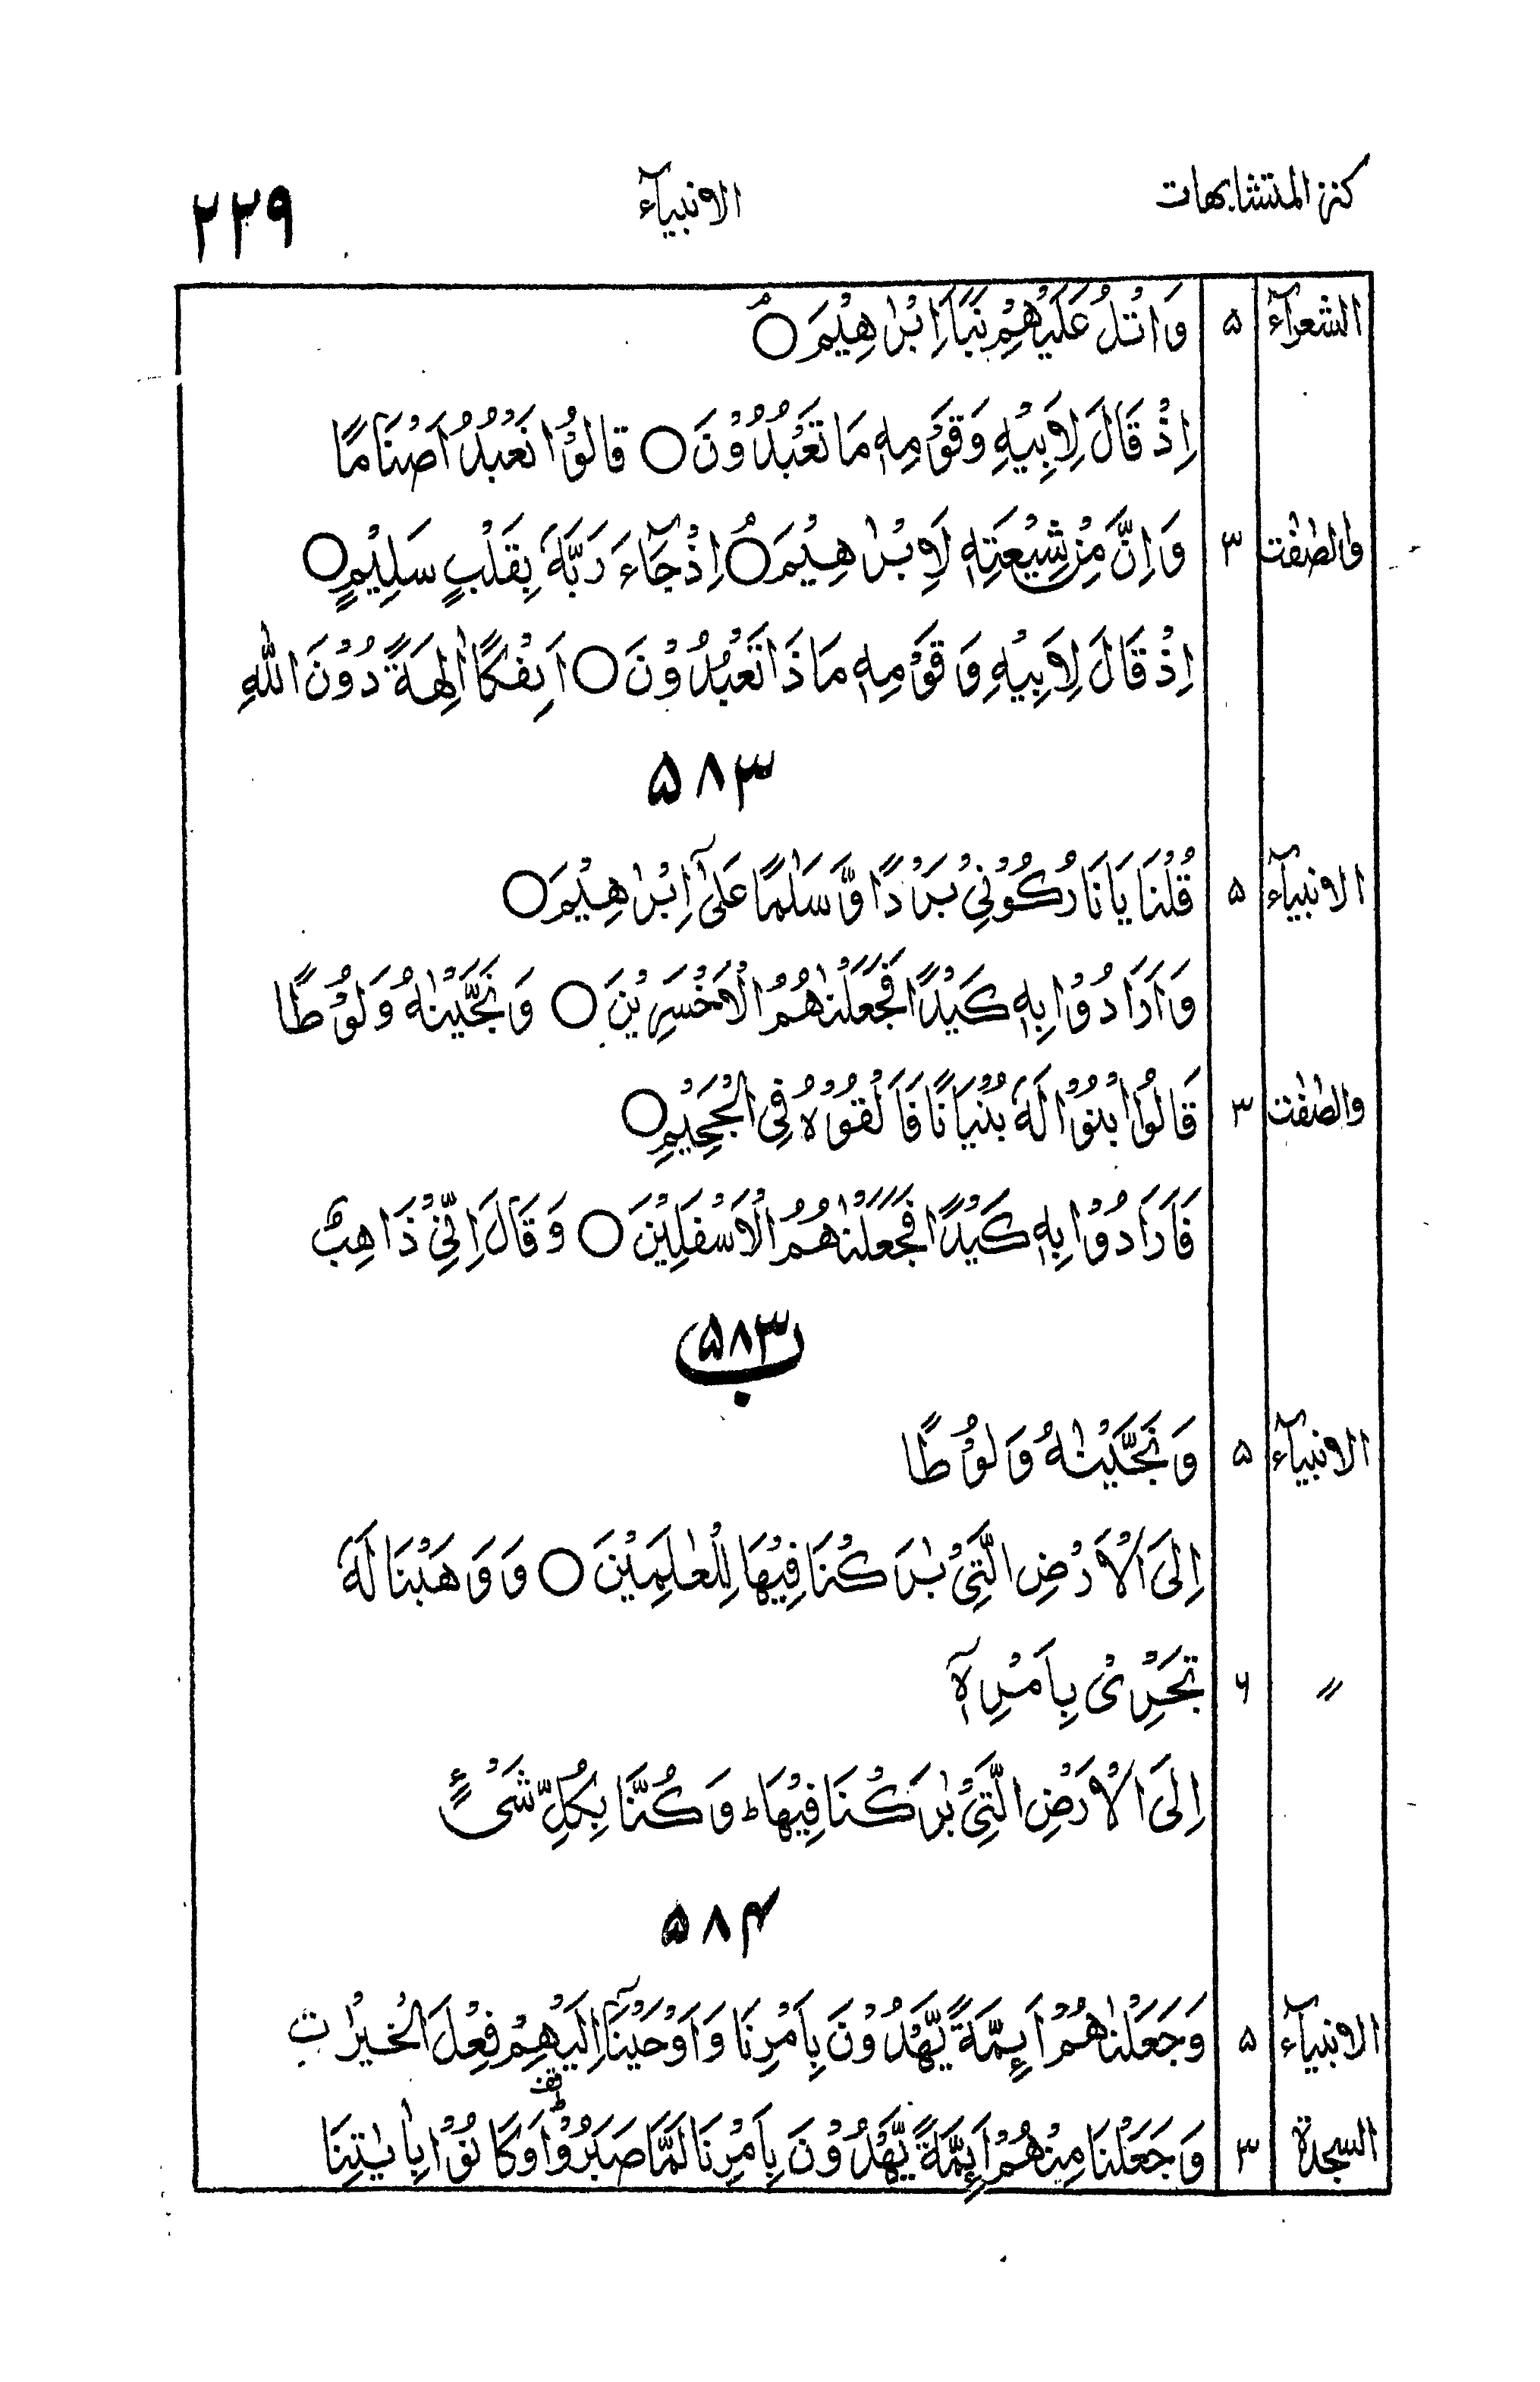 كنز المتشابهات الانبیآء ۲۲۹
الشعرآء ۵ وَاتْلُ عَلَيْهِمْ نَبَاَ اِبْرٰهِيْمَ ○
اِذْ قَالَ لِاَبِيْهِ وَقَوْمِهٖ مَا تَعْبُدُوْنَ ○ قَالُوْا نَعْبُدُ اَصْنَامًا
والصّٰفّٰت ۳ وَاِنَّ مِنْ شِيْعَتِهٖ لَاِبْرٰهِيْمَ ○ اِذْ جَآءَ رَبَّهٗ بِقَلْبٍ سَلِيْمٍ ○
اِذْ قَالَ لِاَبِيْهِ وَقَوْمِهٖ مَاذَا تَعْبُدُوْنَ ○ اَئِفْكًا اٰلِهَةً دُوْنَ اللّٰهِ
۵۸۳
الانبیآء ۵ قُلْنَا يَا نَارُ كُوْنِيْ بَرْدًا وَّسَلٰمًا عَلٰٓى اِبْرٰهِيْمَ ○
وَاَرَادُوْا بِهٖ كَيْدًا فَجَعَلْنٰهُمُ الْاَخْسَرِيْنَ ○ وَنَجَّيْنٰهُ وَلُوْطًا
والصّٰفّٰت ۳ قَالُوا ابْنُوْا لَهٗ بُنْيَانًا فَاَلْقُوْهُ فِى الْجَحِيْمِ ○
فَاَرَادُوْا بِهٖ كَيْدًا فَجَعَلْنٰهُمُ الْاَسْفَلِيْنَ ○ وَقَالَ اِنِّيْ ذَاهِبٌ
۵۸۳ ب
الانبیآء ۵ وَنَجَّيْنٰهُ وَلُوْطًا
اِلَى الْاَرْضِ الَّتِيْ بٰرَكْنَا فِيْهَا لِلْعٰلَمِيْنَ ○ وَوَهَبْنَا لَهٗ
〃 ۶ تَجْرِيْ بِاَمْرِهٖٓ
اِلَى الْاَرْضِ الَّتِيْ بٰرَكْنَا فِيْهَا ؕ وَكُنَّا بِكُلِّ شَىْءٍ
۵۸۴
الانبیآء ۵ وَجَعَلْنٰهُمْ اَئِمَّةً يَّهْدُوْنَ بِاَمْرِنَا وَاَوْحَيْنَآ اِلَيْهِمْ فِعْلَ الْخَيْرٰتِ
السجدة ۳ وَجَعَلْنَا مِنْهُمْ اَئِمَّةً يَّهْدُوْنَ بِاَمْرِنَا لَمَّا صَبَرُوْا ؕ وَكَانُوْا بِاٰيٰتِنَا